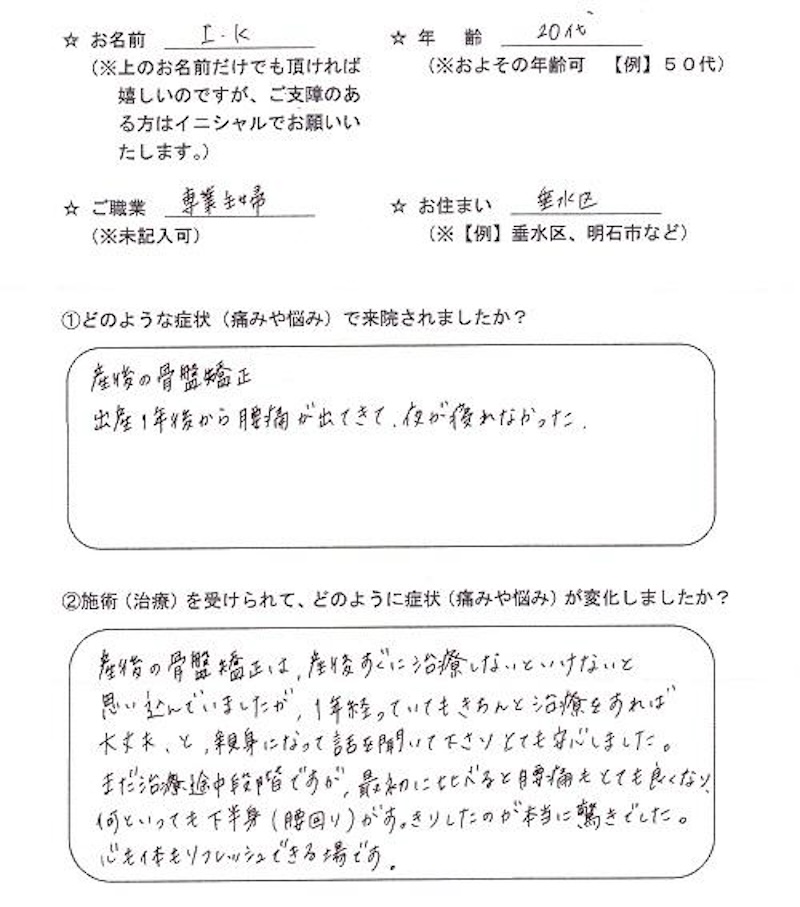 ☆ お名前 I.K
(※上のお名前だけでも頂ければ
嬉しいのですが、ご支障のあ
る方はイニシャルでお願いい
たします。)
☆ 年 齢 20代
(※およその年齢可 【例】50代)
☆ ご職業 専業主婦
(※未記入可)
☆ お住まい 垂水区
(※【例】垂水区、明石市など)
①どのような症状(痛みや悩み)で来院されましたか?
産後の骨盤矯正
出産1年後から腰痛が出てきて、夜が寝れなかった.
②施術(治療)を受けられて、どのように症状(痛みや悩み)が変化しましたか?
産後の骨盤矯正は、産後すぐに治療しないといけないと
思い込んでいましたが、1年経っていてもきちんと治療をすれば
大丈夫、と、親身になって話を聞いて下さりとても安心しました。
まだ治療途中段階ですが、最初に比べると腰痛もとても良くなり、
何といっても下半身(腰回り)がすっきりしたのが本当に驚きでした。
心も体もリフレッシュできる場です。